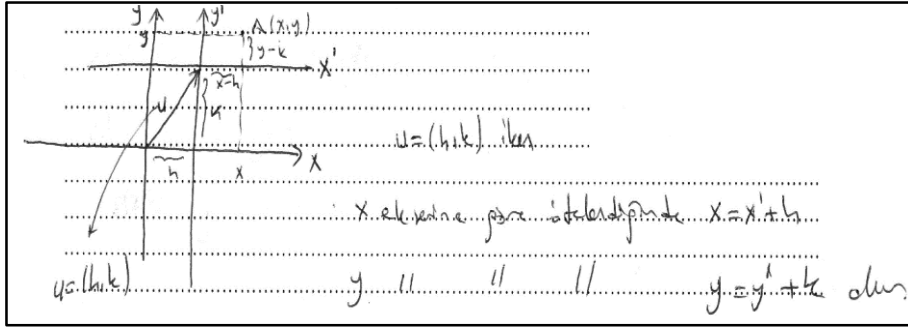 y y' A(x,y)
y } y-k
x'
x-h
u k
u=(h,k) iken
h x x
x eksenine göre ötelendiğinde x=x'+h
u=(h,k) y // // // y=y'+k olur